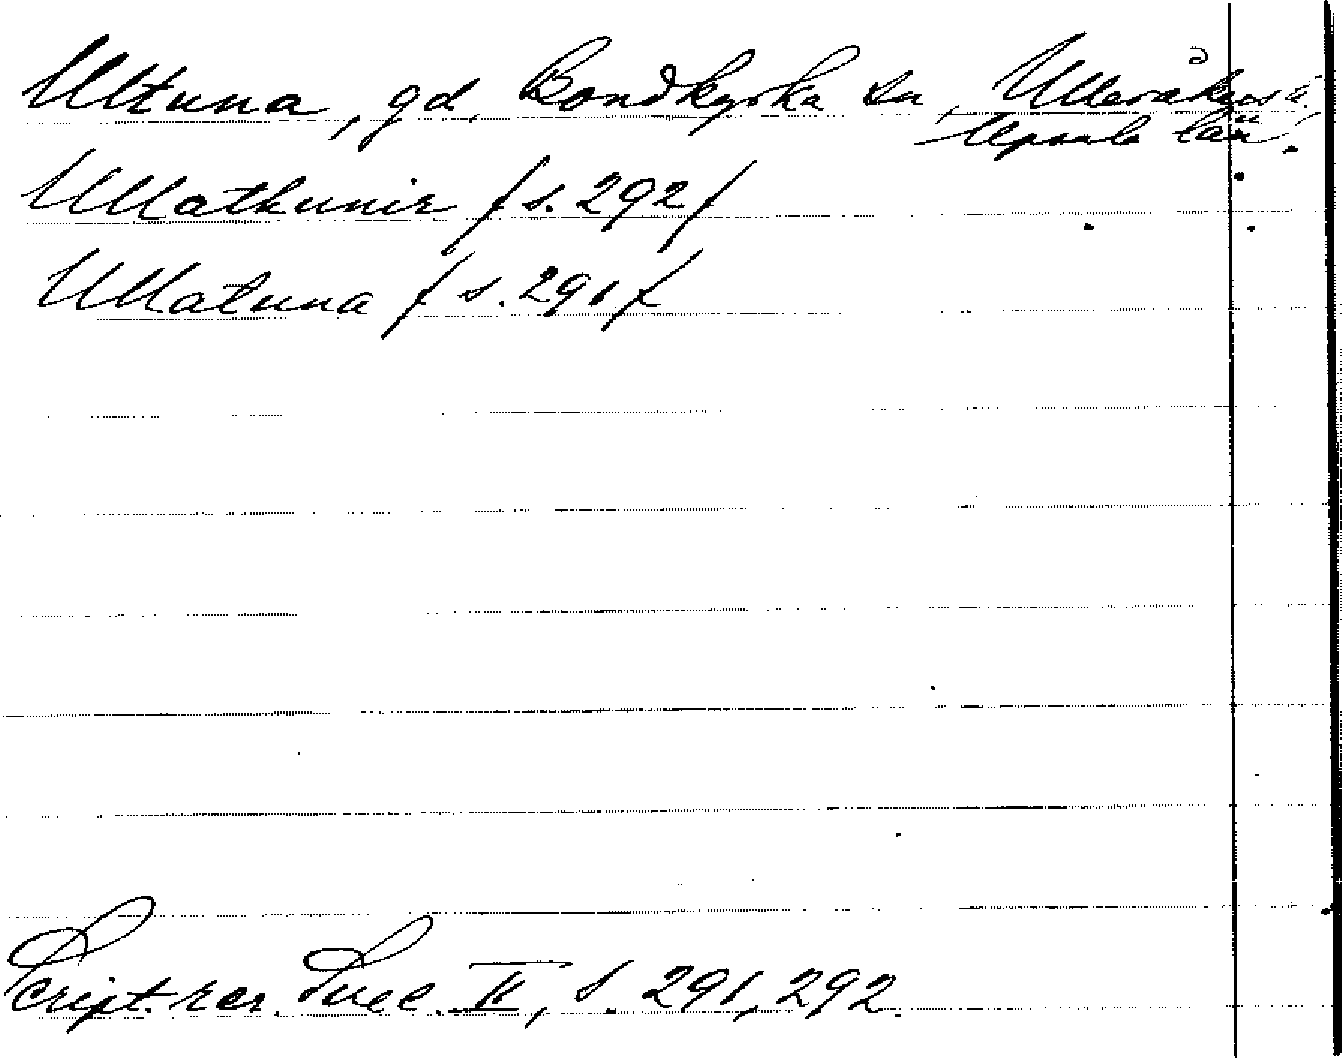 Ultuna, gd, Bondkyrka sn, Ulleråkers h.
Upsala län.
Ullathunir / s. 292 /
Ullatuna / s. 291 /
Script. rer. Suec. II, s. 291, 292.